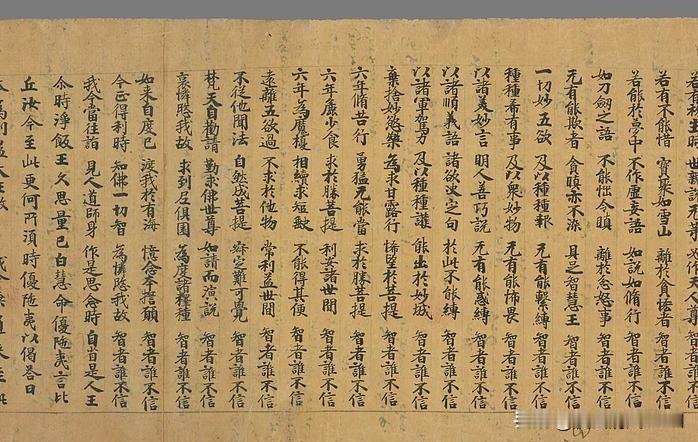 若有不能惜 寶藏如雪山 離於貪極者 智者誰不信
若能於夢中 不作虛妄語 如說如脩行 智者誰不信
如刀劒之語 不能惱令瞋 離於忿怒事 智者誰不信
无有能欺者 貪瞋亦不染 具之智慧王 智者誰不信
一切妙五欲 及以種種報 无有能繫縛 智者誰不信
種種希有事 及以衆妙物 无有能怖畏 智者誰不信
以諸美妙言 明人善巧說 无有能惑縛 智者誰不信
以諸順義語 諸欲決定句 於此不能縛 智者誰不信
以諸軍駕力 及以種種護 能出於妙城 智者誰不信
棄捨妙慾樂 為求甘露行 悕望於菩提 智者誰不信
六年脩苦行 勇猛无能當 求於勝菩提 智者誰不信
六年麁少食 求於勝菩提 利安諸世間 智者誰不信
六年為魔 相續求短缺 不能得其便 智者誰不信
遠離五欲過 不求於他物 常利益世間 智者誰不信
不從他聞法 自然成菩提 寂定難可覺 智者誰不信
梵天自勸請 勤求佛世尊 如請而演說 智者誰不信
哀憐愍我故 求到尼俱園 為度諸釋種 智者誰不信
如来自度已 渡我於有海 憶念本擔願 智者誰不信
今正得利時 知佛一切智 為憐愍我故 智者誰不信
我今當往詣 見人道師身 作是思念時 自省是人王
尒時淨飯王久思量已白慧命優陁夷言比
丘汝今至此更何所須時優陁夷以偈答曰